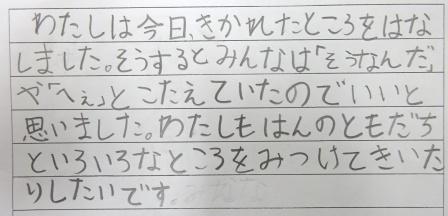 わたしは今日、きかれたところをはな
しました。そうするとみんなは「そうなんだ」
や「へぇ」とこたえていたのでいいと
思いました。わたしもはんのともだち
といろいろなところをみつけてきいた
りしたいです。